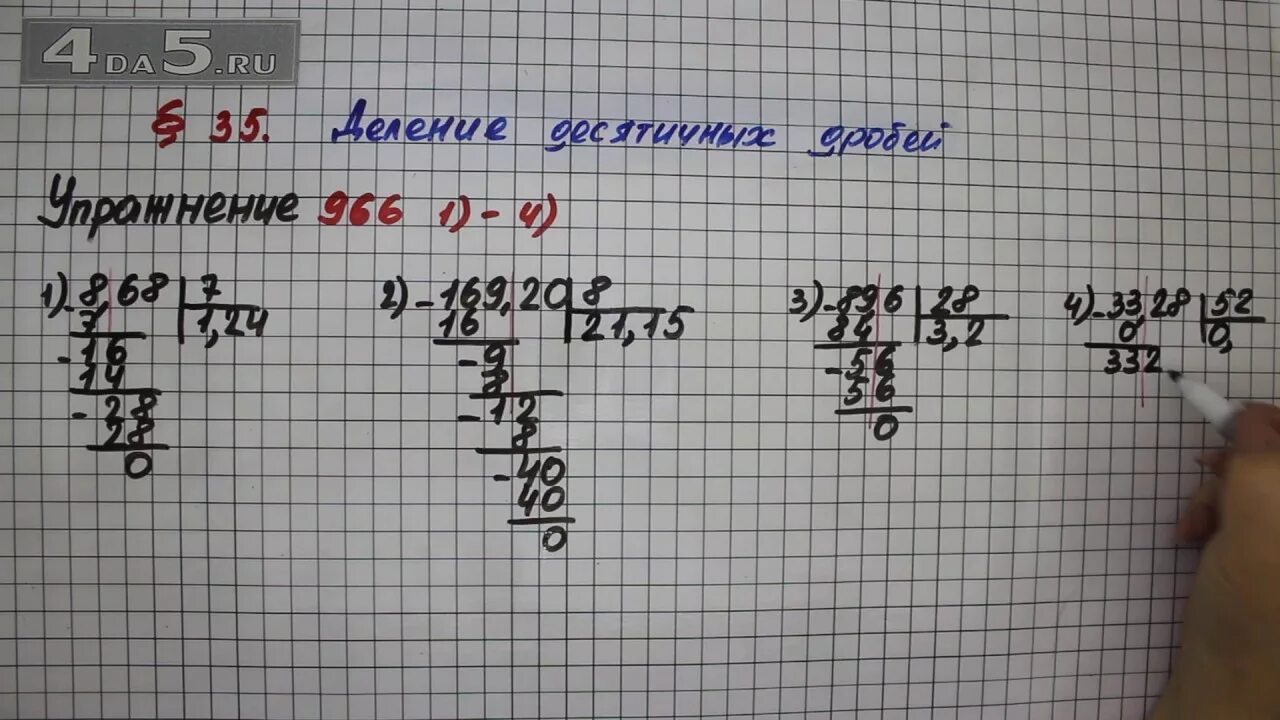 4DA5.RU
§ 35. Деление десятичных дробей
Упражнение 966 1) - 4)
1) - 8,68 | 7
7 | 1,24
- 16
14
- 28
28
0
2) - 169,20 | 8
16 | 21,15
- 9
8
- 12
8
- 40
40
0
3) - 89 6 | 28
84 | 3,2
- 56
56
0
4) - 33,28 | 52
0 | 0,
332